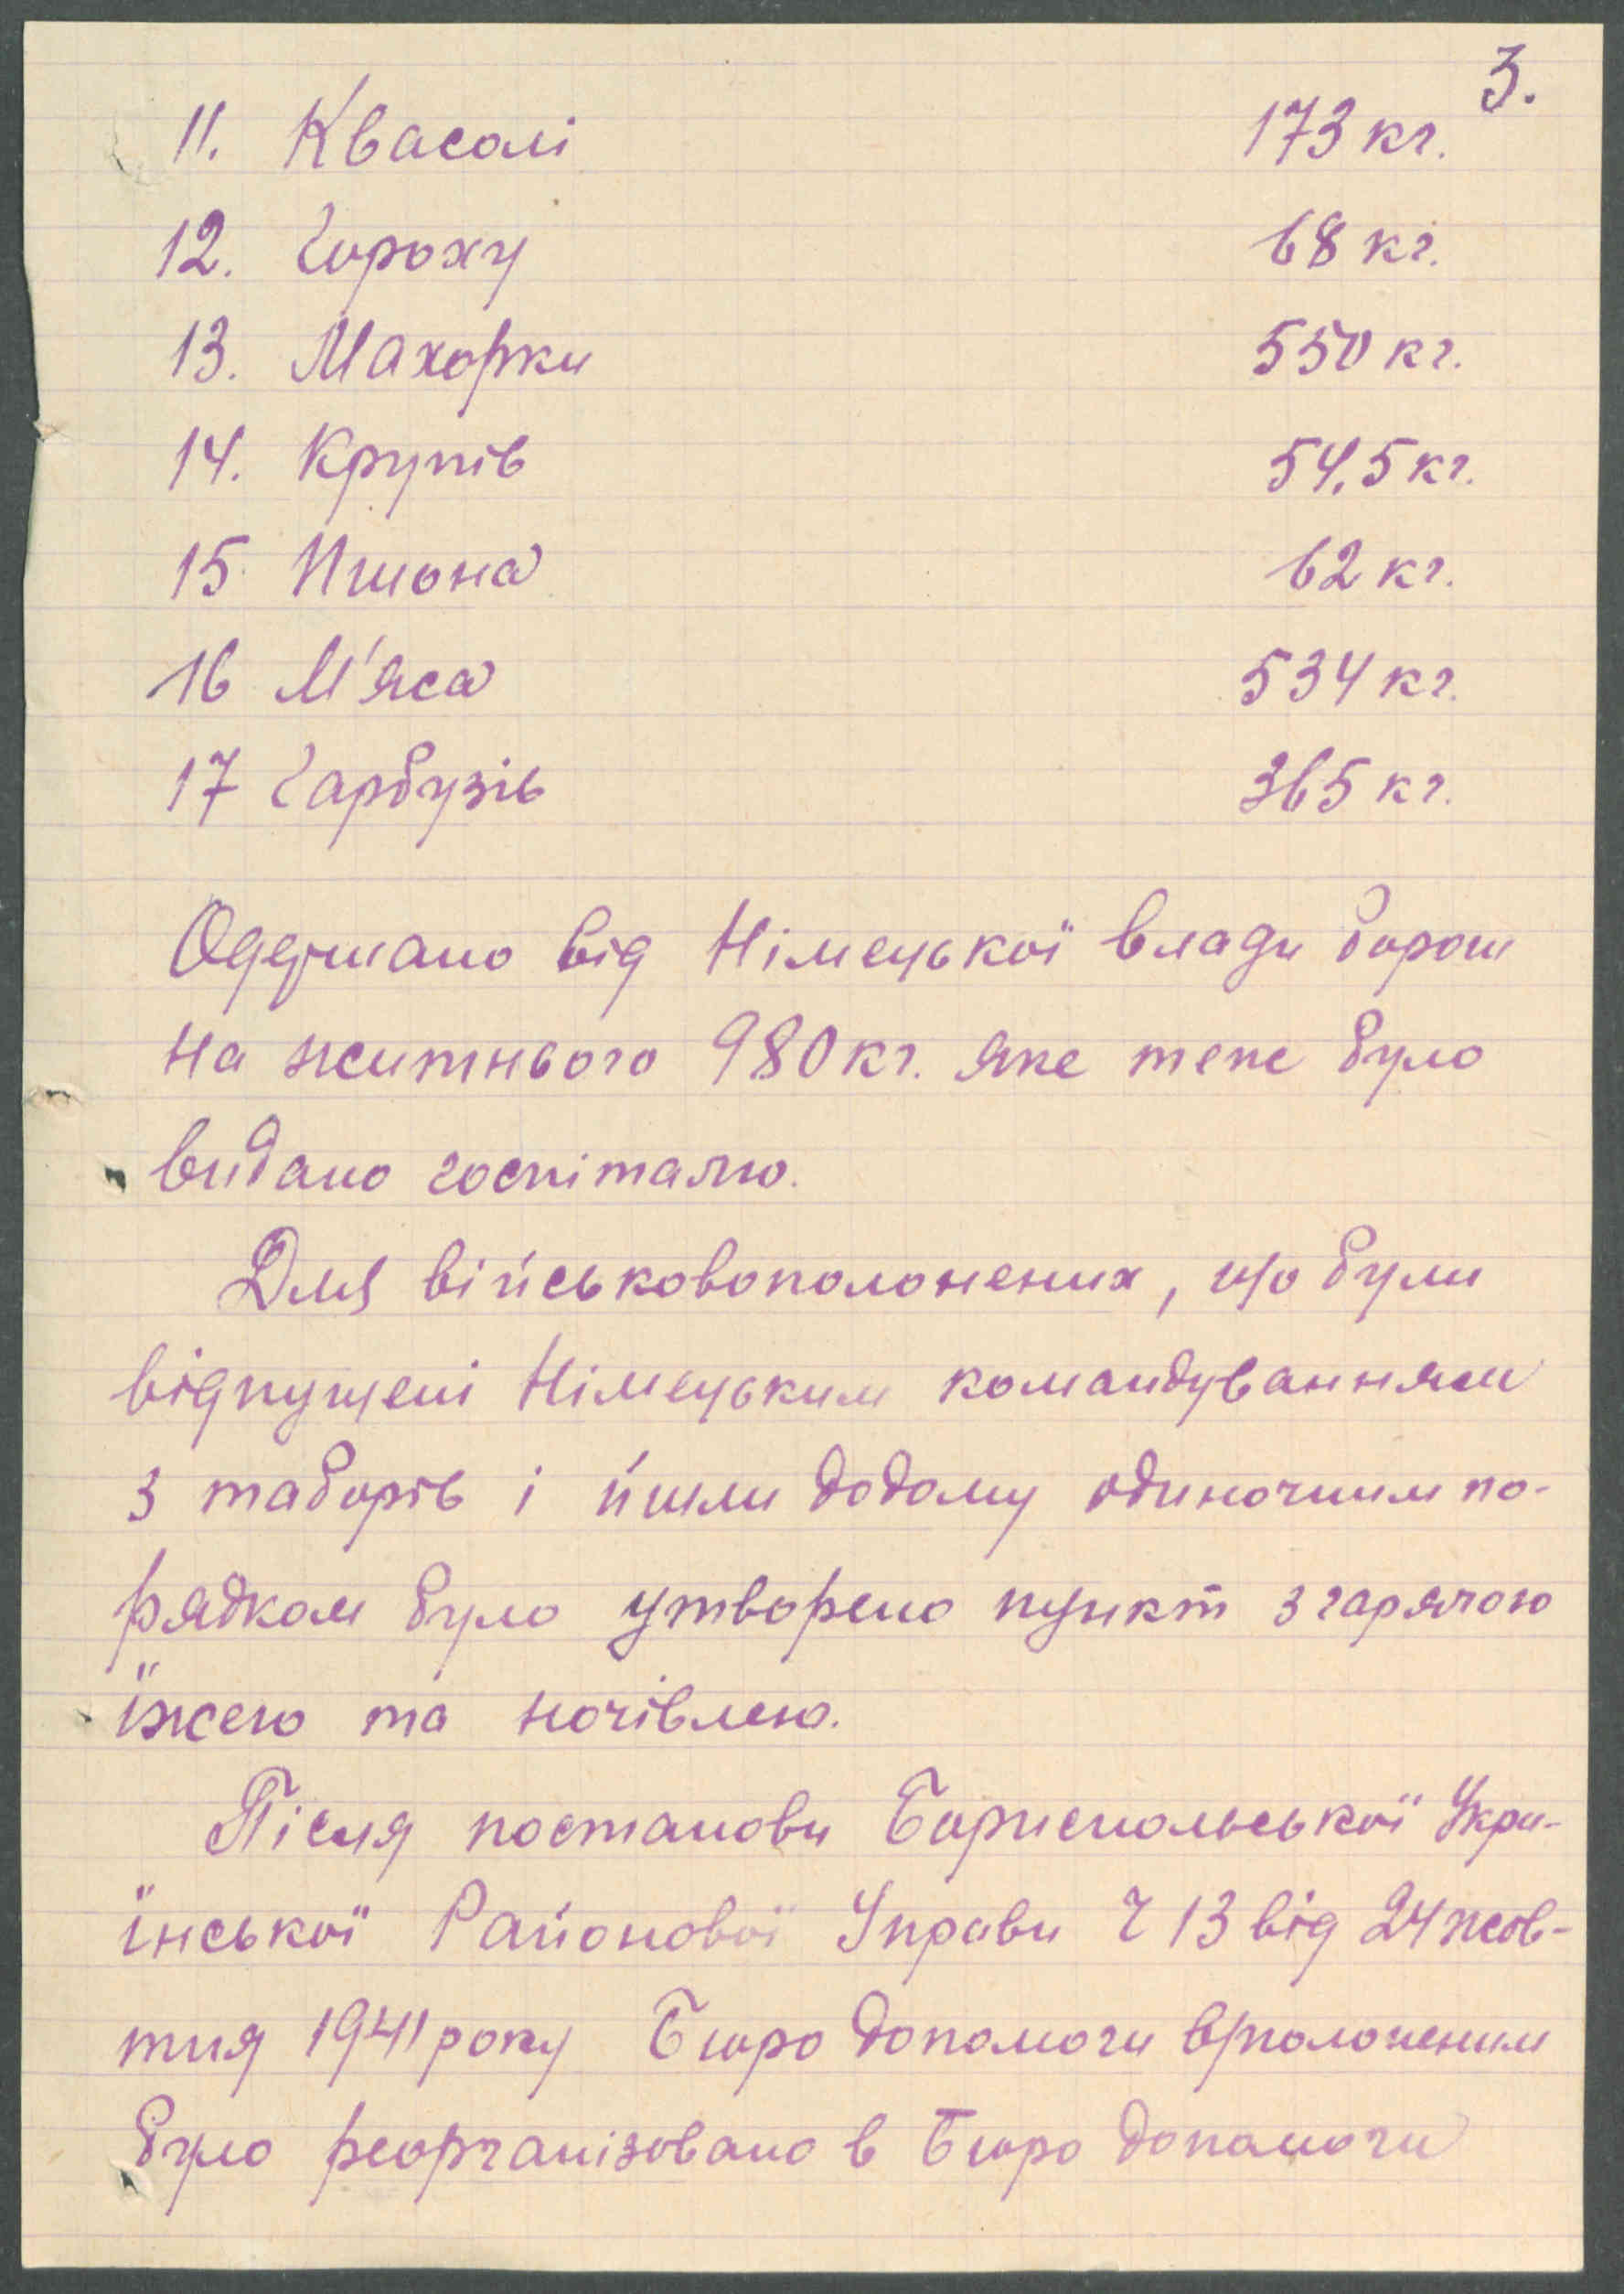 3.
11. Квасолі 173 кг.
12. Гороху 68 кг.
13. Махорки 550 кг.
14. Крупів 54,5 кг.
15. Пшона 62 кг.
16 М'яса 534 кг.
17 Гарбузів 365 кг.
Одержано від Німецької влади борош
на житнього 980 кг. яке теж було
видано госпіталю.
Для військовополонених, що були
відпущені Німецьким командуванням
з таборів і йшли додому одиночним по-
рядком було утворено пункт з гарячою
їжею та ночівлею.
Після постанови Бориспольської Укра-
їнської Районової Управи Ч 13 від 24 жов-
тня 1941 року Бюро допомоги в/полоненим
було реорганізовано в Бюро допомоги